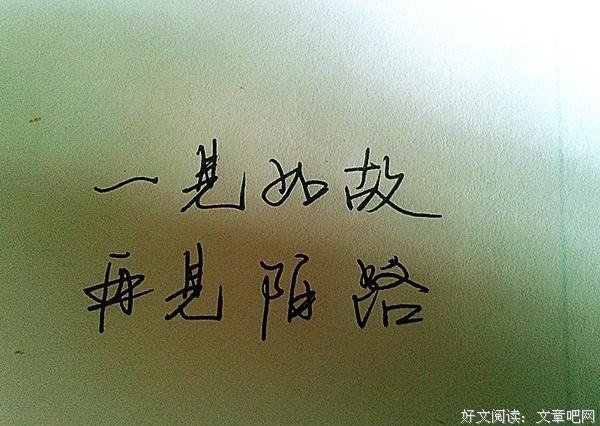 一見如故
再見陌路
好文阅读：文章吧网